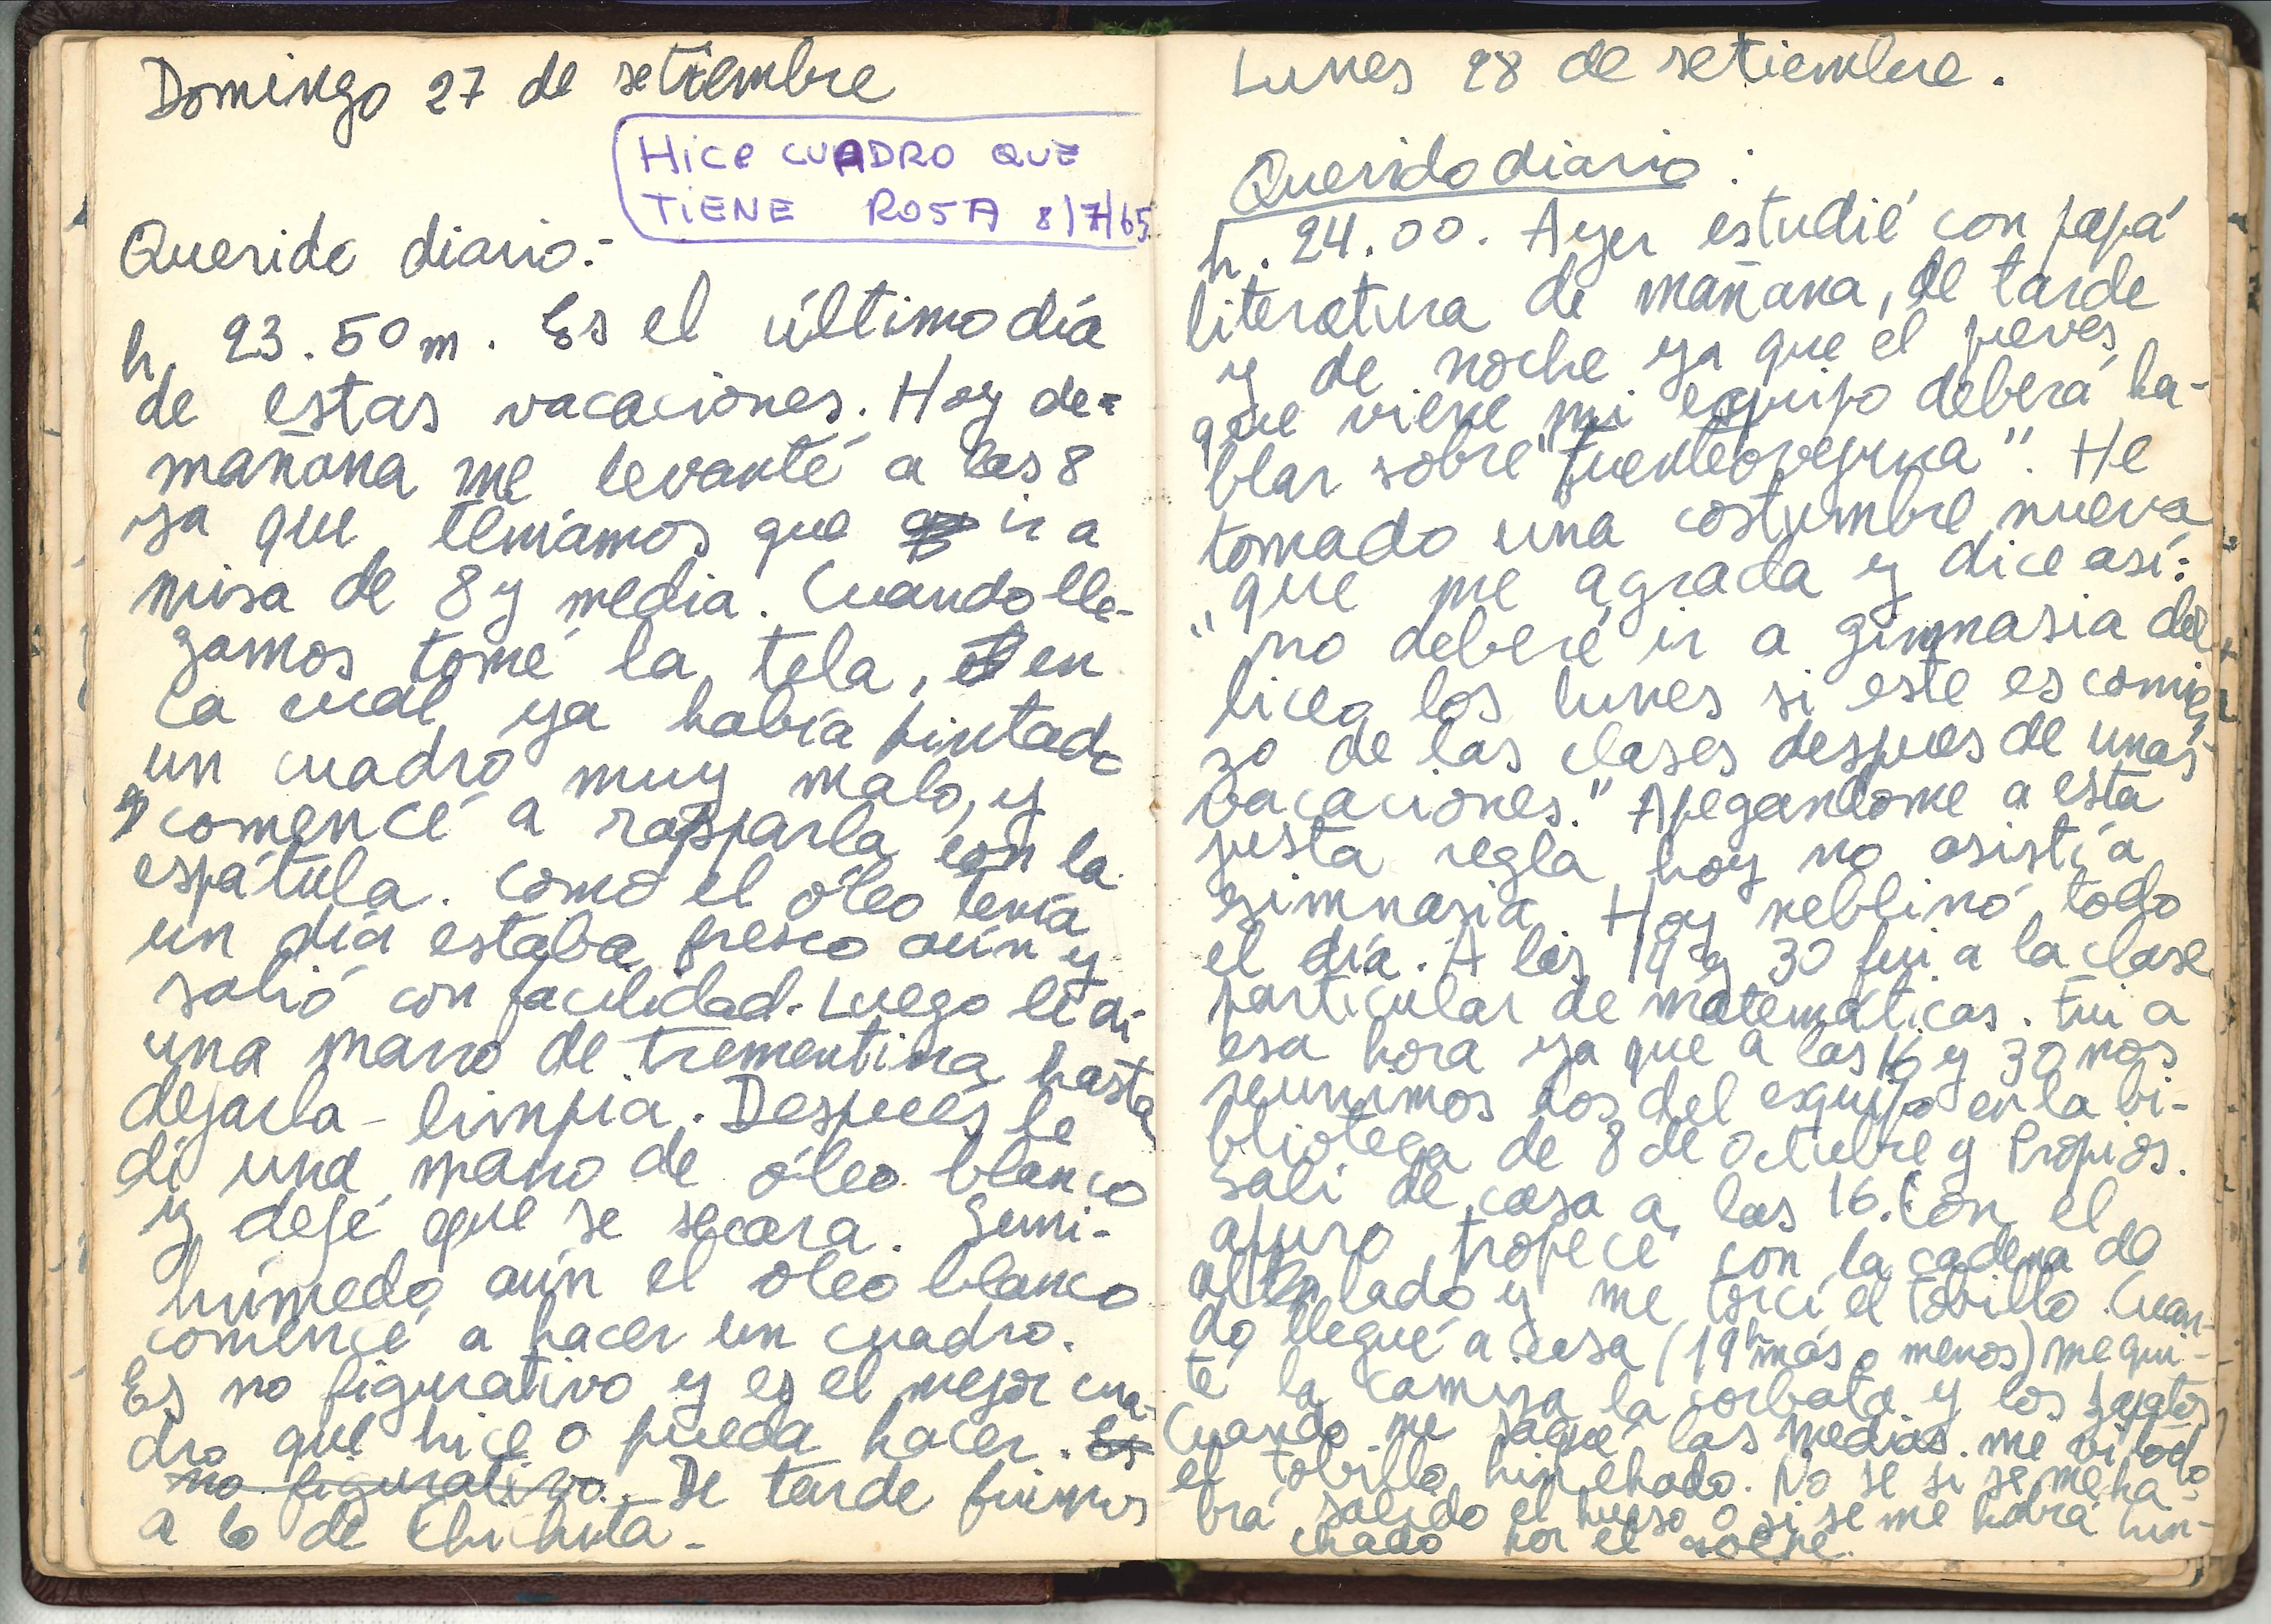 Domingo 27 de setiembre
Hice CUADRO QUE
TIENE ROSA 8/7/65
Querido diario:-
h. 23.50m. Es el último día
de estas vacaciones. Hoy de-
mañana me levanté a las 8
ya que teníamos que ir a
misa de 8 y media. Cuando lle-
gamos tomé la tela, en
la cual ya había pintado
un cuadro muy malo, y
comencé a rasparla con la
espátula. Como el óleo tenía
un día estaba fresco aún y
salió con facilidad. Luego le di
una mano de trementina hasta
dejarla - limpia. Después le
di una mano de óleo blanco
y dejé que se secara. Semi-
húmedo aún el óleo blanco
comencé a hacer un cuadro.
Es no figurativo y es el mejor cua-
dro que hice o pueda hacer. Es
no figurativo. De tarde fuimos
a lo de Chichita -
Lunes 28 de setiembre.
Querido diario:
h. 24.00. Ayer estudié con papá
literatura de mañana, de tarde
y de noche ya que el jueves
que viene mi equipo deberá ha-
blar sobre "Fuenteovejuna". He
tomado una costumbre nueva
que me agrada y dice así:
"no deberé ir a gimnasia del
liceo los lunes si este es comien
zo de las clases despues de unas
vacaciones." Apegandome a esta
justa regla hoy no asistí a
gimnasia. Hoy neblinó todo
el día. A las 14 y 30 fui a la clase
particular de matemáticas. Fui a
esa hora ya que a las 16 y 30 nos
reunimos los del equipo en la bi-
blioteca de 8 de Octubre y Propios.
Salí de casa a las 16. Con el
apuro tropecé con la cadena de
al lado y me torcí el tobillo. Cuan-
do llegué a casa (19h más o menos) me qui-
té la camisa la corbata y los zapatos,
Cuando me saqué las medias me vi todo
el tobillo hinchado. No se si se me ha-
brá salido el hueso o si se me habrá hin-
chado por el golpe.